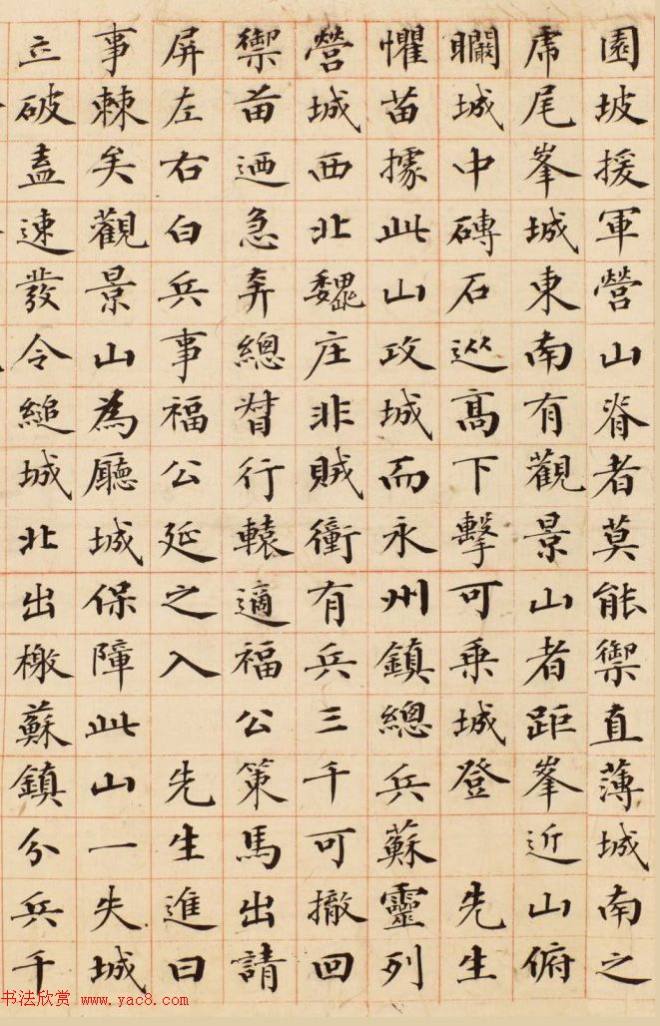 園坡援軍營山脊者莫能禦直薄城南之
虎尾峯城東南有觀景山者距峯近山俯
瞯城中磚石巡高下擊可乗城登先生
懼苗據此山攻城而永州鎮總兵蘇靈列
營城西北魏庄非賊衝有兵三千可撤回
禦苗迺急奔總督行轅適福公策馬出請
屏左右白兵事福公延之入先生進曰
事棘矣觀景山為廳城保障此山一失城
立破盍速發令縋城北出檄蘇鎮分兵千
书法欣赏 www.yac8.com